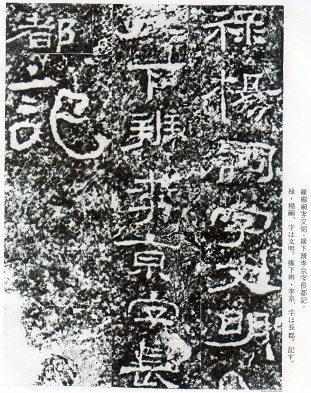 祿楊嗣字文明、掾下辨李京字長都記。
禄・楊嗣、字は文明、掾下辨・李京、字は長都、記す。
祿楊嗣字文明
下辨李京字長
都記